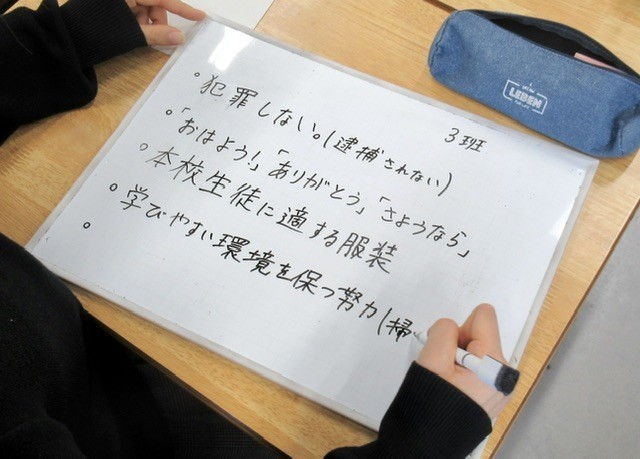 3班
。犯罪しない。(逮捕されない)
。「おはよう!」「ありがとう」「さようなら」
。本校生徒に適する服装
。学びやすい環境を保つ努力(掃
。
LEBEN